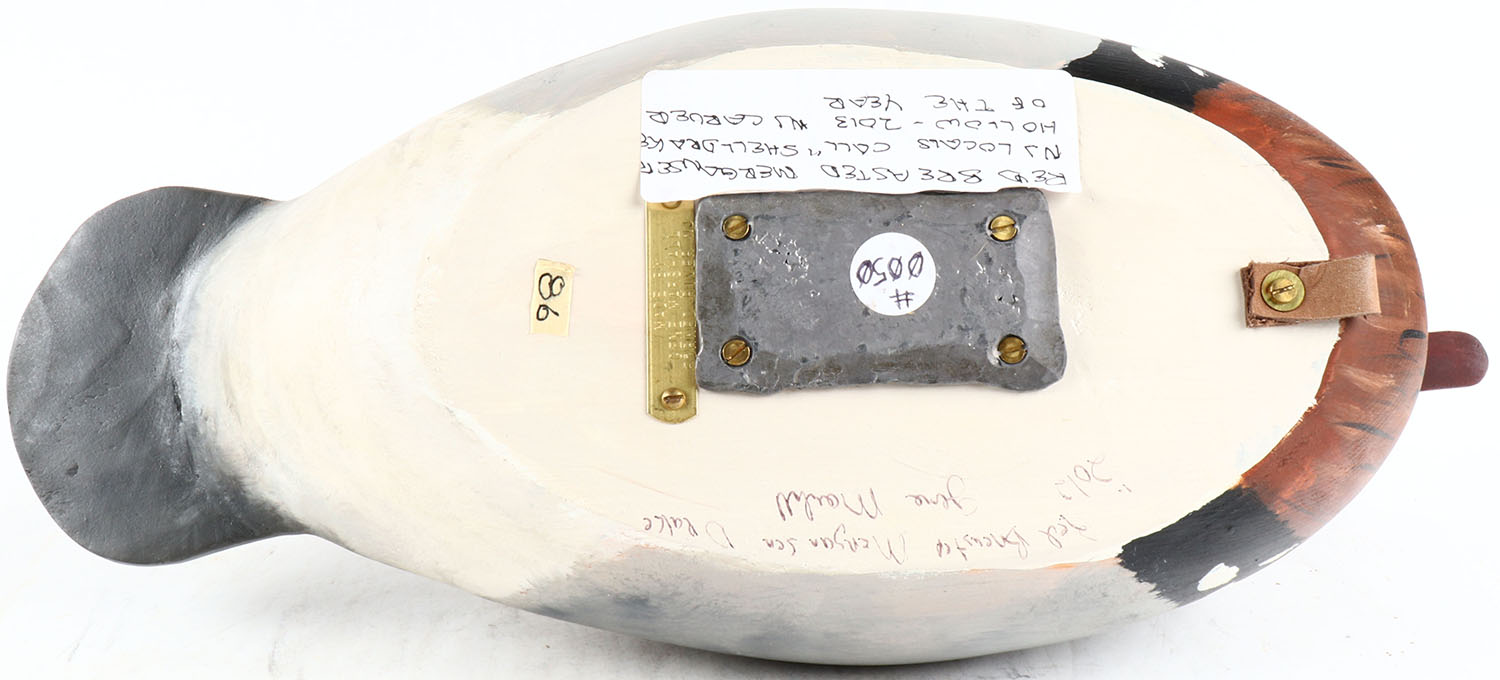 RED BREASTED MERGANSER
NJ LOCALS CALL "SHELLDRAKE
HOLLOW - 2013 NJ CARVER
OF THE YEAR
#
0050
86
Red Breasted Merganser Drake
Gene
2012